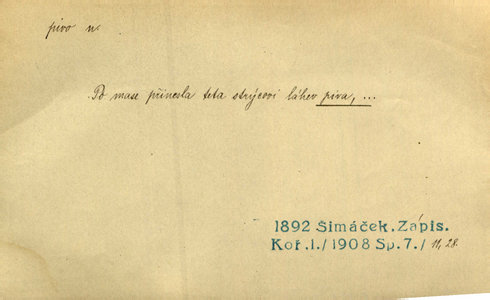 pivo n.
Po mase přinesla teta strýcovi láhev piva, ...
1892 Šimáček, Zápis.
Koř.1./1908 Sp.7./ 11, 28.